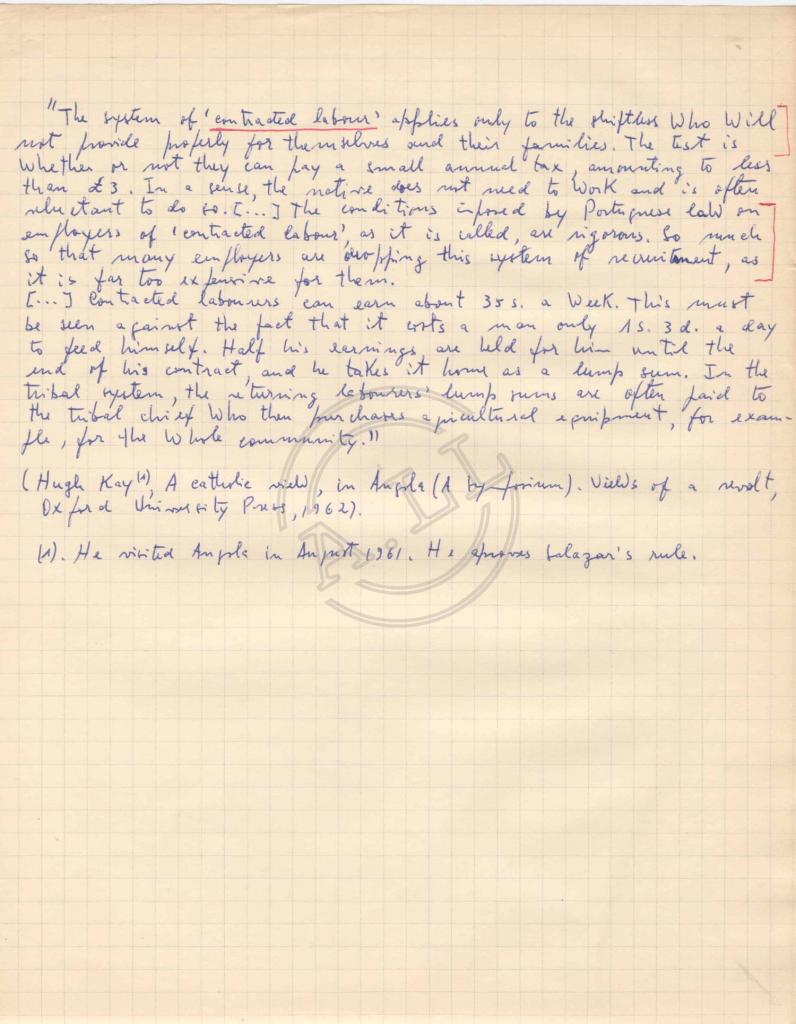 "The system of 'contracted labour' applies only to the shiftless who will
not provide properly for themselves and their families. The test is
whether or not they can pay a small annual tax, amounting to less
than £3. In a sense, the native does not need to work and is often
reluctant to do so. [...] The conditions imposed by Portuguese law on
employers of 'contracted labour', as it is called, are rigorous. So much
so that many employers are dropping this system of recruitment, as
it is far too expensive for them.
[...] Contracted labourers can earn about 35 s. a week. This must
be seen against the fact that it costs a man only 1 s. 3 d. a day
to feed himself. Half his earnings are held for him until the
end of his contract, and he takes it home as a lump sum. In the
tribal system, the returning labourers' lump sums are often paid to
the tribal chief who then purchases agricultural equipment, for exam-
ple, for the whole community."
(Hugh Kay (1), A catholic view, in Angola (A symposium). Views of a revolt,
Oxford University Press, 1962).
(1). He visited Angola in August 1961. He aproves Salazar's rule.
A.LL